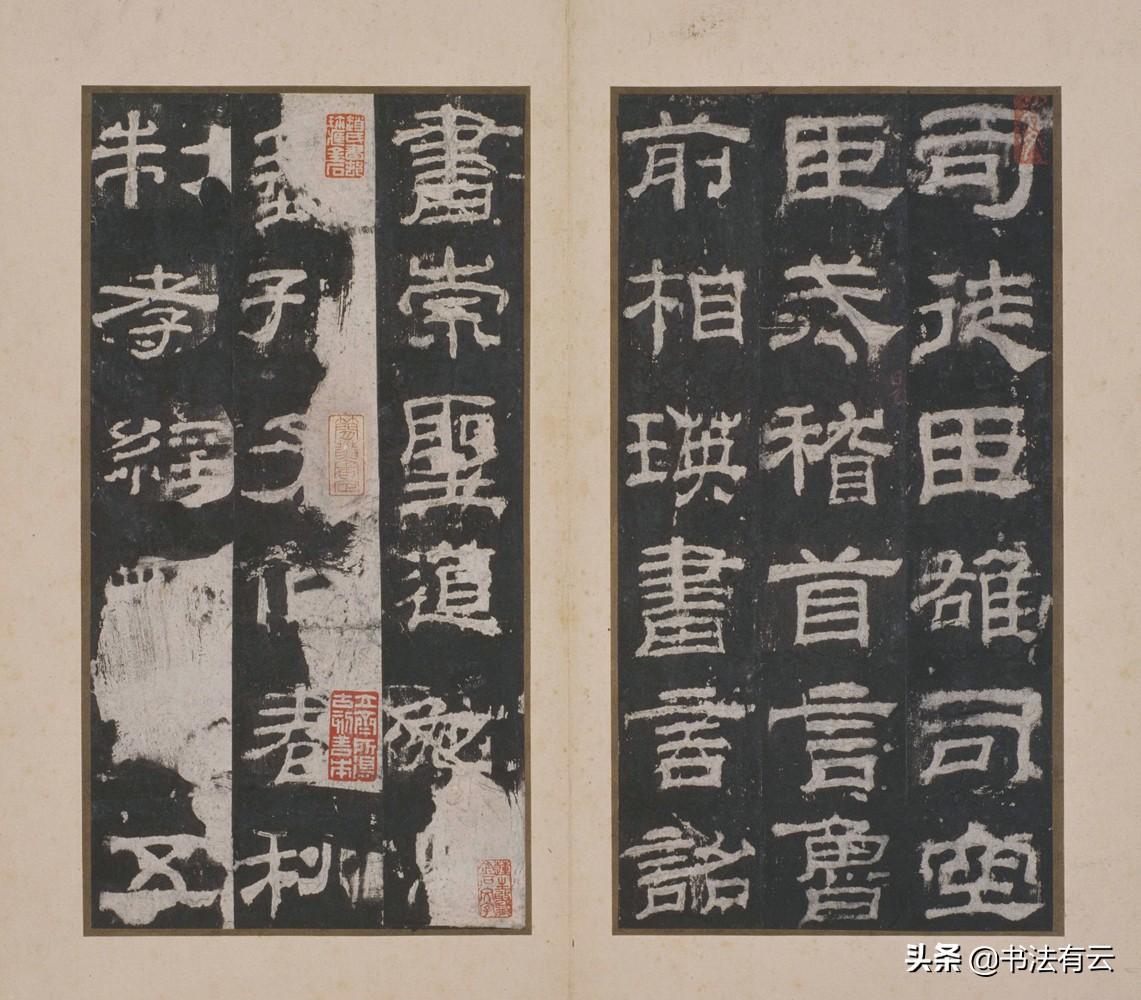 司徒臣雄司空
臣戒稽首言魯
前相瑛書言詔
書崇聖道勉
孔子作春秋
制孝經五
头条 @书法有云